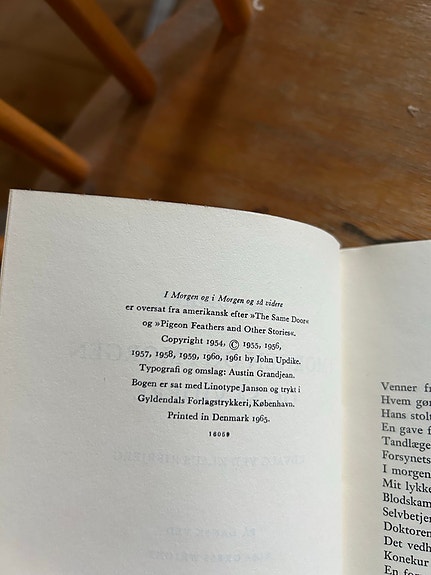 I Morgen og i Morgen og så videre
er oversat fra amerikansk efter »The Same Door«
og »Pigeon Feathers and Other Stories«.
Copyright 1954, © 1955, 1956,
1957, 1958, 1959, 1960, 1961 by John Updike.
Typografi og omslag: Austin Grandjean.
Bogen er sat med Linotype Janson og trykt i
Gyldendals Forlagstrykkeri, København.
Printed in Denmark 1965.
16059
Venner
Hvem
Hans
En gave
I morgen
Mit
Det
En